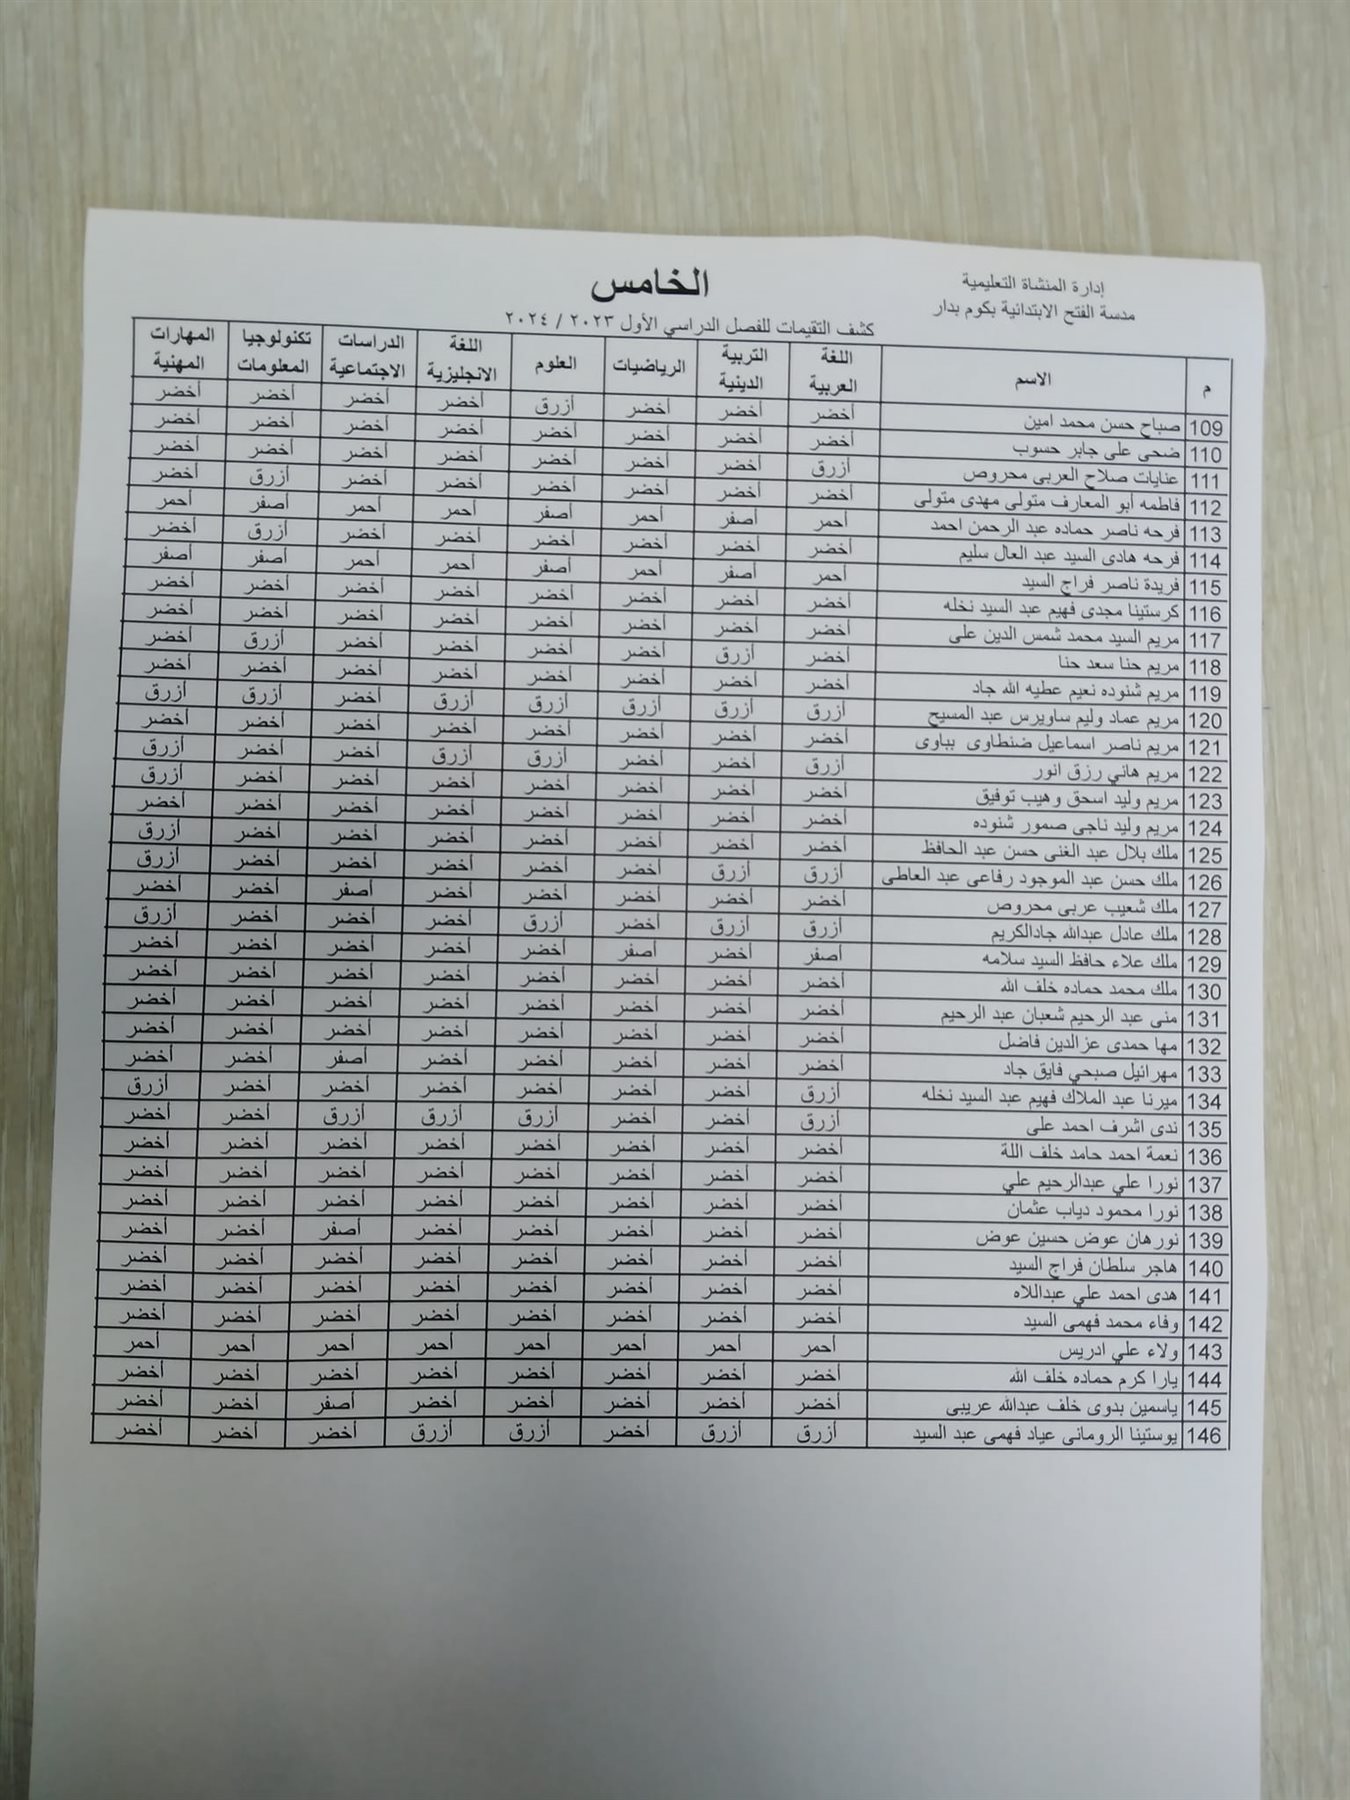 الخامس
إدارة المنشاة التعليمية
مدسة الفتح الابتدائية بكوم بدار
كشف التقيمات للفصل الدراسي الأول ٢٠٢٣ / ٢٠٢٤
م الاسم اللغة العربية التربية الدينية الرياضيات العلوم اللغة الانجليزية الدراسات الاجتماعية تكنولوجيا المعلومات المهارات المهنية
109 صباح حسن محمد امين أخضر أخضر أخضر أزرق أخضر أخضر أخضر أخضر
110 ضحى على جابر حسوب أخضر أخضر أخضر أخضر أخضر أخضر أخضر أخضر
111 عنايات صلاح العربى محروص أزرق أخضر أخضر أخضر أخضر أخضر أخضر أخضر
112 فاطمه أبو المعارف متولى مهدى متولى أخضر أخضر أخضر أخضر أخضر أخضر أزرق أخضر
113 فرحه ناصر حماده عبد الرحمن احمد أحمر أصفر أحمر أصفر أحمر أحمر أصفر أحمر
114 فرحه هادى السيد عبد العال سليم أخضر أخضر أخضر أخضر أخضر أخضر أزرق أخضر
115 فريدة ناصر فراج السيد أحمر أصفر أحمر أصفر أحمر أحمر أصفر أصفر
116 كرستينا مجدى فهيم عبد السيد نخله أخضر أخضر أخضر أخضر أخضر أخضر أخضر أخضر
117 مريم السيد محمد شمس الدين على أخضر أخضر أخضر أخضر أخضر أخضر أخضر أخضر
118 مريم حنا سعد حنا أخضر أزرق أخضر أخضر أخضر أخضر أزرق أخضر
119 مريم شنوده نعيم عطيه الله جاد أخضر أخضر أخضر أخضر أخضر أخضر أخضر أخضر
120 مريم عماد وليم ساويرس عبد المسيح أزرق أزرق أزرق أزرق أزرق أخضر أزرق أزرق
121 مريم ناصر اسماعيل ضنطاوى بباوى أخضر أخضر أخضر أخضر أخضر أخضر أخضر أخضر
122 مريم هاني رزق انور أزرق أخضر أخضر أزرق أزرق أخضر أخضر أزرق
123 مريم وليد اسحق وهيب توفيق أخضر أخضر أخضر أخضر أخضر أخضر أخضر أزرق
124 مريم وليد ناجى صمور شنوده أخضر أخضر أخضر أخضر أخضر أخضر أخضر أخضر
125 ملك بلال عبد الغنى حسن عبد الحافظ أخضر أخضر أخضر أخضر أخضر أخضر أخضر أزرق
126 ملك حسن عبد الموجود رفاعى عبد العاطى أزرق أزرق أخضر أخضر أخضر أخضر أخضر أزرق
127 ملك شعيب عربى محروص أخضر أخضر أخضر أخضر أخضر أصفر أخضر أخضر
128 ملك عادل عبدالله جادالكريم أزرق أزرق أخضر أزرق أخضر أخضر أخضر أزرق
129 ملك علاء حافظ السيد سلامه أصفر أخضر أصفر أخضر أخضر أخضر أخضر أخضر
130 ملك محمد حماده خلف الله أخضر أخضر أخضر أخضر أخضر أخضر أخضر أخضر
131 منى عبد الرحيم شعبان عبد الرحيم أخضر أخضر أخضر أخضر أخضر أخضر أخضر أخضر
132 مها حمدى عزالدين فاضل أخضر أخضر أخضر أخضر أخضر أخضر أخضر أخضر
133 مهرائيل صبحي فايق جاد أخضر أخضر أخضر أخضر أخضر أصفر أخضر أخضر
134 ميرنا عبد الملاك فهيم عبد السيد نخله أزرق أخضر أخضر أخضر أخضر أخضر أخضر أزرق
135 ندى اشرف احمد على أزرق أخضر أخضر أزرق أزرق أزرق أخضر أخضر
136 نعمة احمد حامد خلف اللة أخضر أخضر أخضر أخضر أخضر أخضر أخضر أخضر
137 نورا علي عبدالرحيم علي أخضر أخضر أخضر أخضر أخضر أخضر أخضر أخضر
138 نورا محمود دياب عثمان أخضر أخضر أخضر أخضر أخضر أخضر أخضر أخضر
139 نورهان عوض حسين عوض أخضر أخضر أخضر أخضر أخضر أصفر أخضر أخضر
140 هاجر سلطان فراج السيد أخضر أخضر أخضر أخضر أخضر أخضر أخضر أخضر
141 هدى احمد علي عبداللاه أخضر أخضر أخضر أخضر أخضر أخضر أخضر أخضر
142 وفاء محمد فهمى السيد أخضر أخضر أخضر أخضر أخضر أخضر أخضر أخضر
143 ولاء علي ادريس أحمر أحمر أحمر أحمر أحمر أحمر أحمر أحمر
144 يارا كرم حماده خلف الله أخضر أخضر أخضر أخضر أخضر أخضر أخضر أخضر
145 ياسمين بدوى خلف عبدالله عريبى أخضر أخضر أخضر أخضر أخضر أصفر أخضر أخضر
146 يوستينا الرومانى عياد فهمى عبد السيد أزرق أزرق أخضر أزرق أزرق أخضر أخضر أخضر